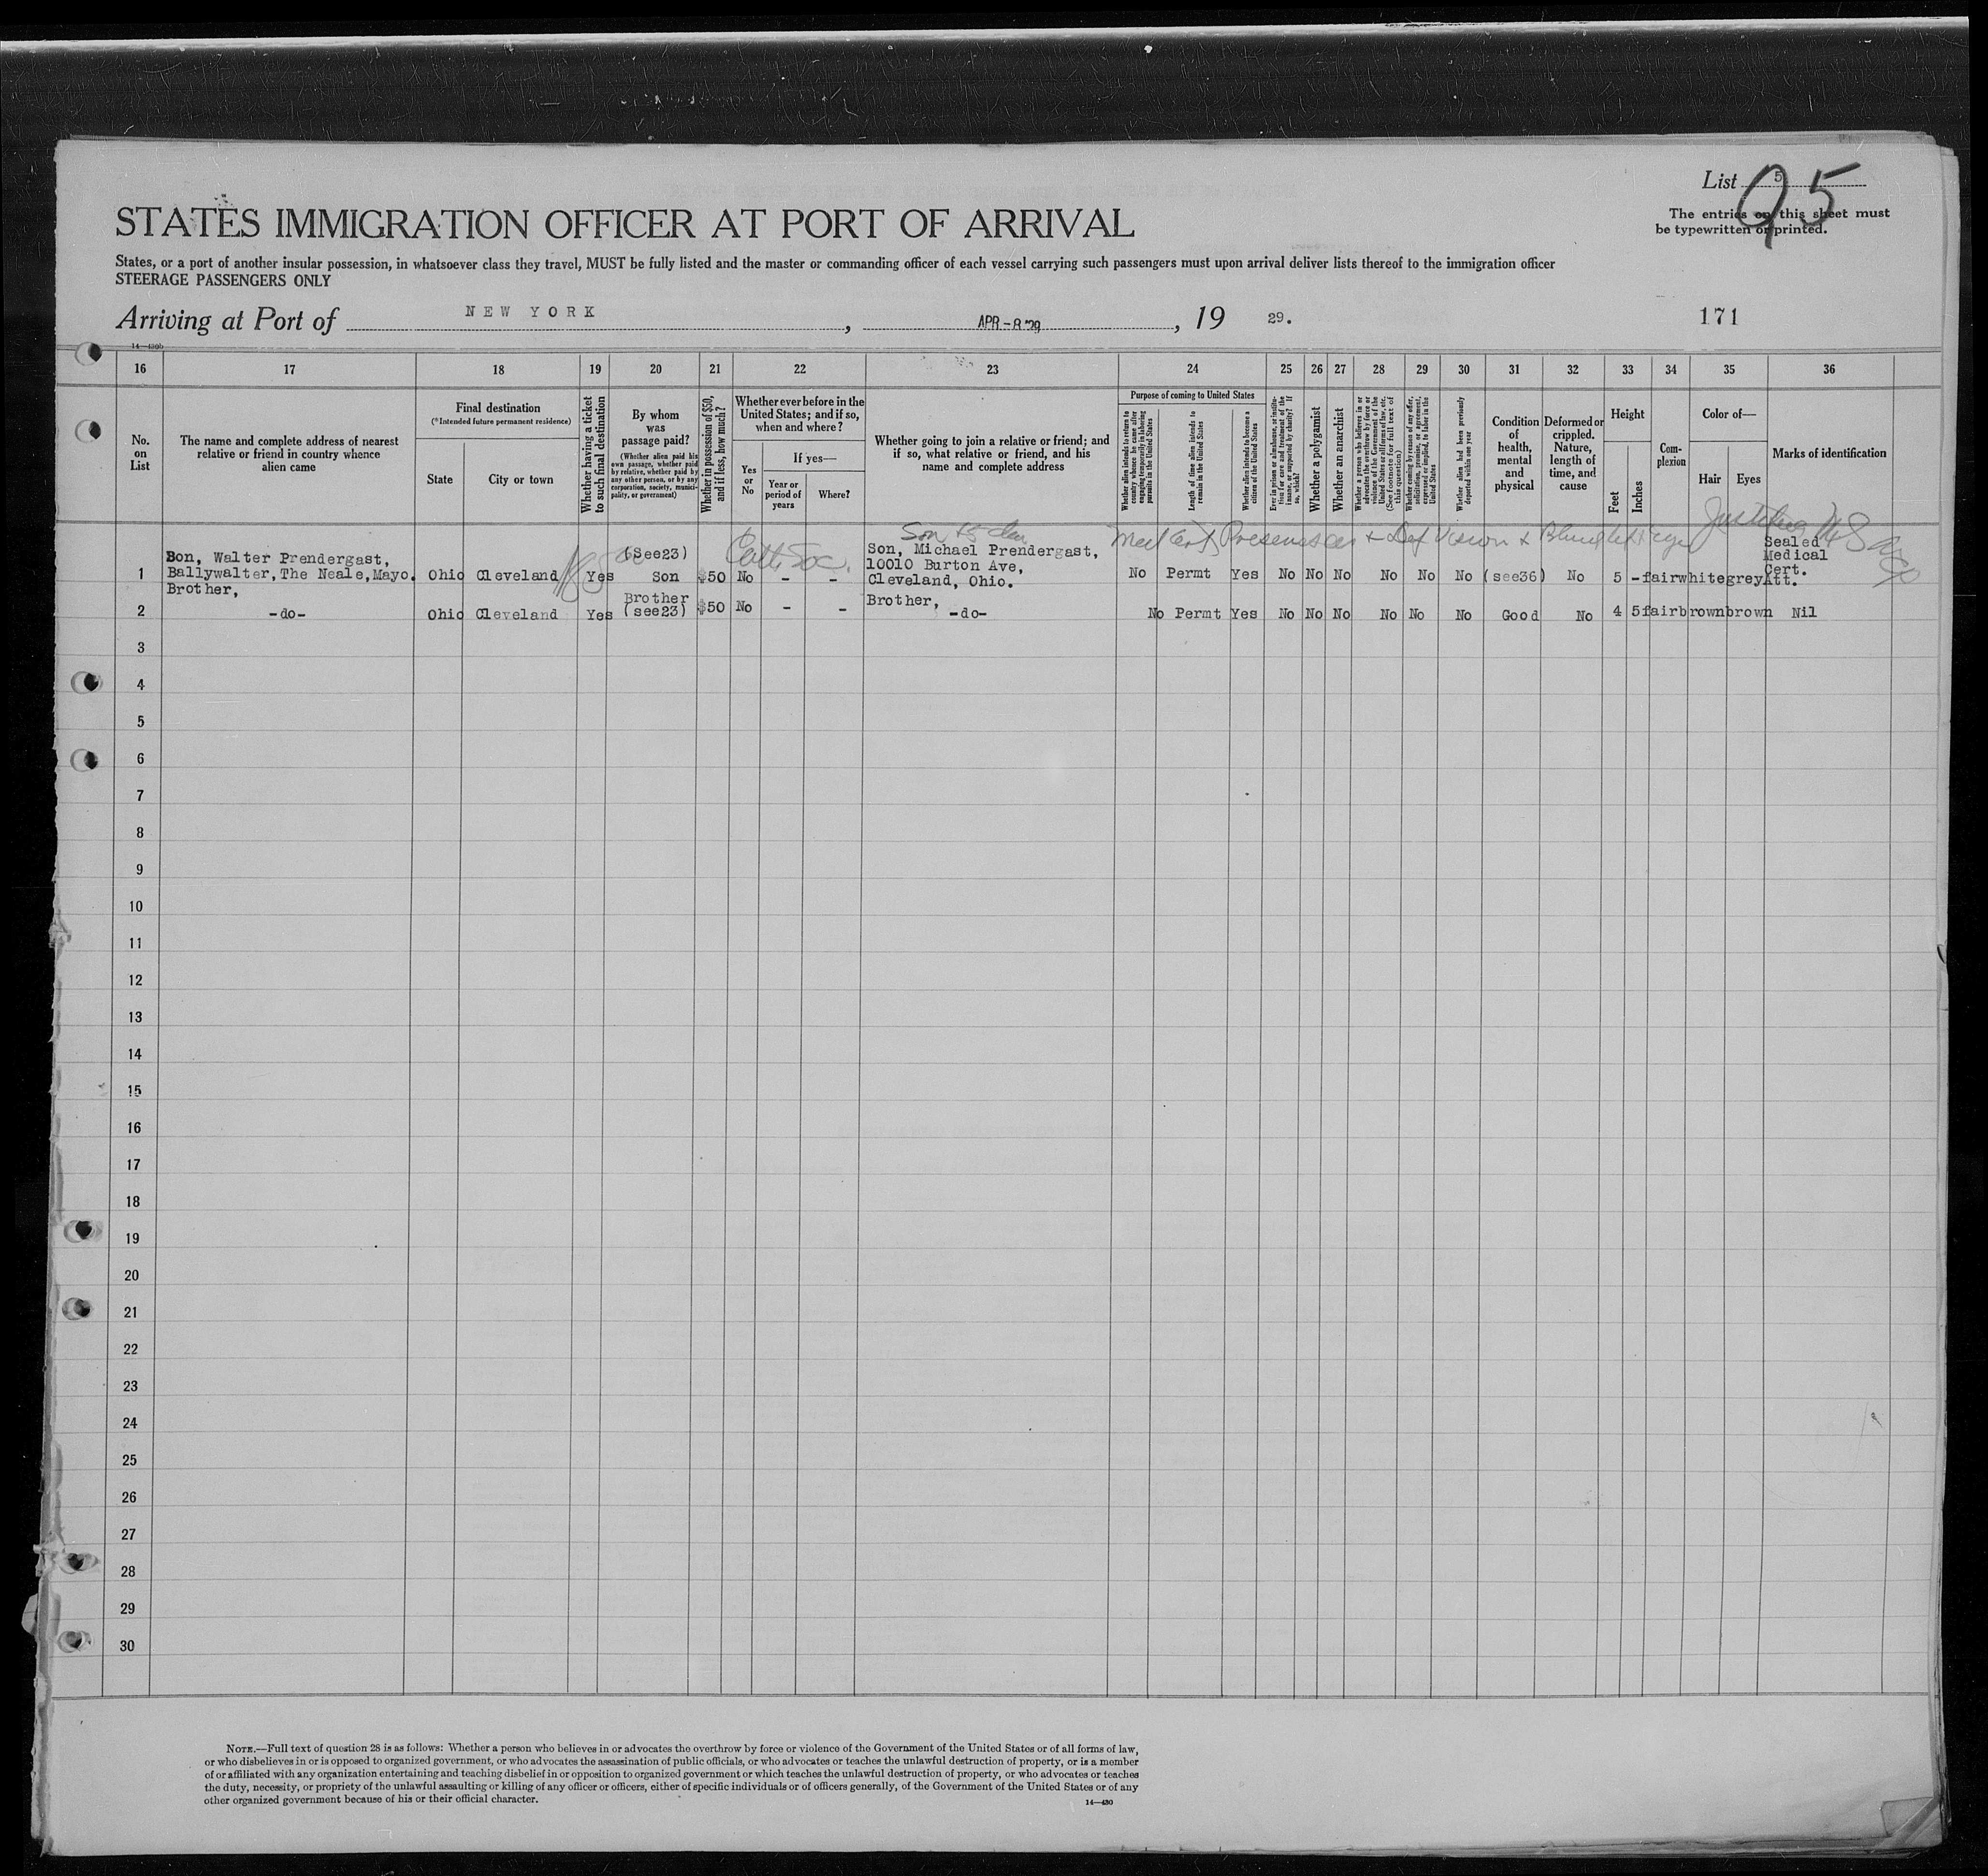 List 5
95
The entries on this sheet must
be typewritten or printed.
STATES IMMIGRATION OFFICER AT PORT OF ARRIVAL
States, or a port of another insular possession, in whatsoever class they travel, MUST be fully listed and the master or commanding officer of each vessel carrying such passengers must upon arrival deliver lists thereof to the immigration officer
STEERAGE PASSENGERS ONLY
Arriving at Port of NEW YORK, APR-8'29, 19 29.
171
14—430b
16 17 18 19 20 21 22 23 24 25 26 27 28 29 30 31 32 33 34 35 36
No. on List
The name and complete address of nearest relative or friend in country whence alien came
Final destination
(*Intended future permanent residence)
State
City or town
Whether having a ticket to such final destination
By whom was passage paid?
(Whether alien paid his own passage, whether paid by relative, whether paid by any other person, or by any corporation, society, municipality, or government)
Whether in possession of $50, and if less, how much?
Whether ever before in the United States; and if so, when and where?
Yes or No
If yes—
Year or period of years
Where?
Whether going to join a relative or friend; and if so, what relative or friend, and his name and complete address
Purpose of coming to United States
Whether alien intends to return to country whence he came after engaging temporarily in laboring pursuits in the United States
Length of time alien intends to remain in the United States
Whether alien intends to become a citizen of the United States
Ever in prison or almshouse, or institution for care and treatment of the insane, or supported by charity? If so, which?
Whether a polygamist
Whether an anarchist
Whether a person who believes in or advocates the overthrow by force or violence of the Government of the United States or all forms of law, etc. (See footnote for full text of this question)
Whether coming by reason of any offer, solicitation, promise, or agreement, expressed or implied, to labor in the United States
Whether alien had been previously deported within one year
Condition of health, mental and physical
Deformed or crippled. Nature, length of time, and cause
Height
Feet
Inches
Complexion
Color of—
Hair
Eyes
Marks of identification
Med Cert
1 Son, Walter Prendergast,
Ballywalter, The Neale, Mayo. Ohio Cleveland Yes (See23) Son $50 No - - Son, Michael Prendergast,
10010 Burton Ave,
Cleveland, Ohio. No Permt Yes No No No No No No (see36) No 5 - fair white grey Sealed
Medical
Cert.
Att.
2 Brother,
-do- Ohio Cleveland Yes Brother
(see23) $50 No - - Brother,
-do- No Permt Yes No No No No No No Good No 4 5 fair brown brown Nil
3
4
5
6
7
8
9
10
11
12
13
14
15
16
17
18
19
20
21
22
23
24
25
26
27
28
29
30
NOTE.—Full text of question 28 is as follows: Whether a person who believes in or advocates the overthrow by force or violence of the Government of the United States or of all forms of law,
or who disbelieves in or is opposed to organized government, or who advocates the assassination of public officials, or who advocates or teaches the unlawful destruction of property, or is a member
of or affiliated with any organization entertaining and teaching disbelief in or opposition to organized government or which teaches the unlawful destruction of property, or who advocates or teaches
the duty, necessity, or propriety of the unlawful assaulting or killing of any officer or officers, either of specific individuals or of officers generally, of the Government of the United States or of any
other organized government because of his or their official character.
14—430